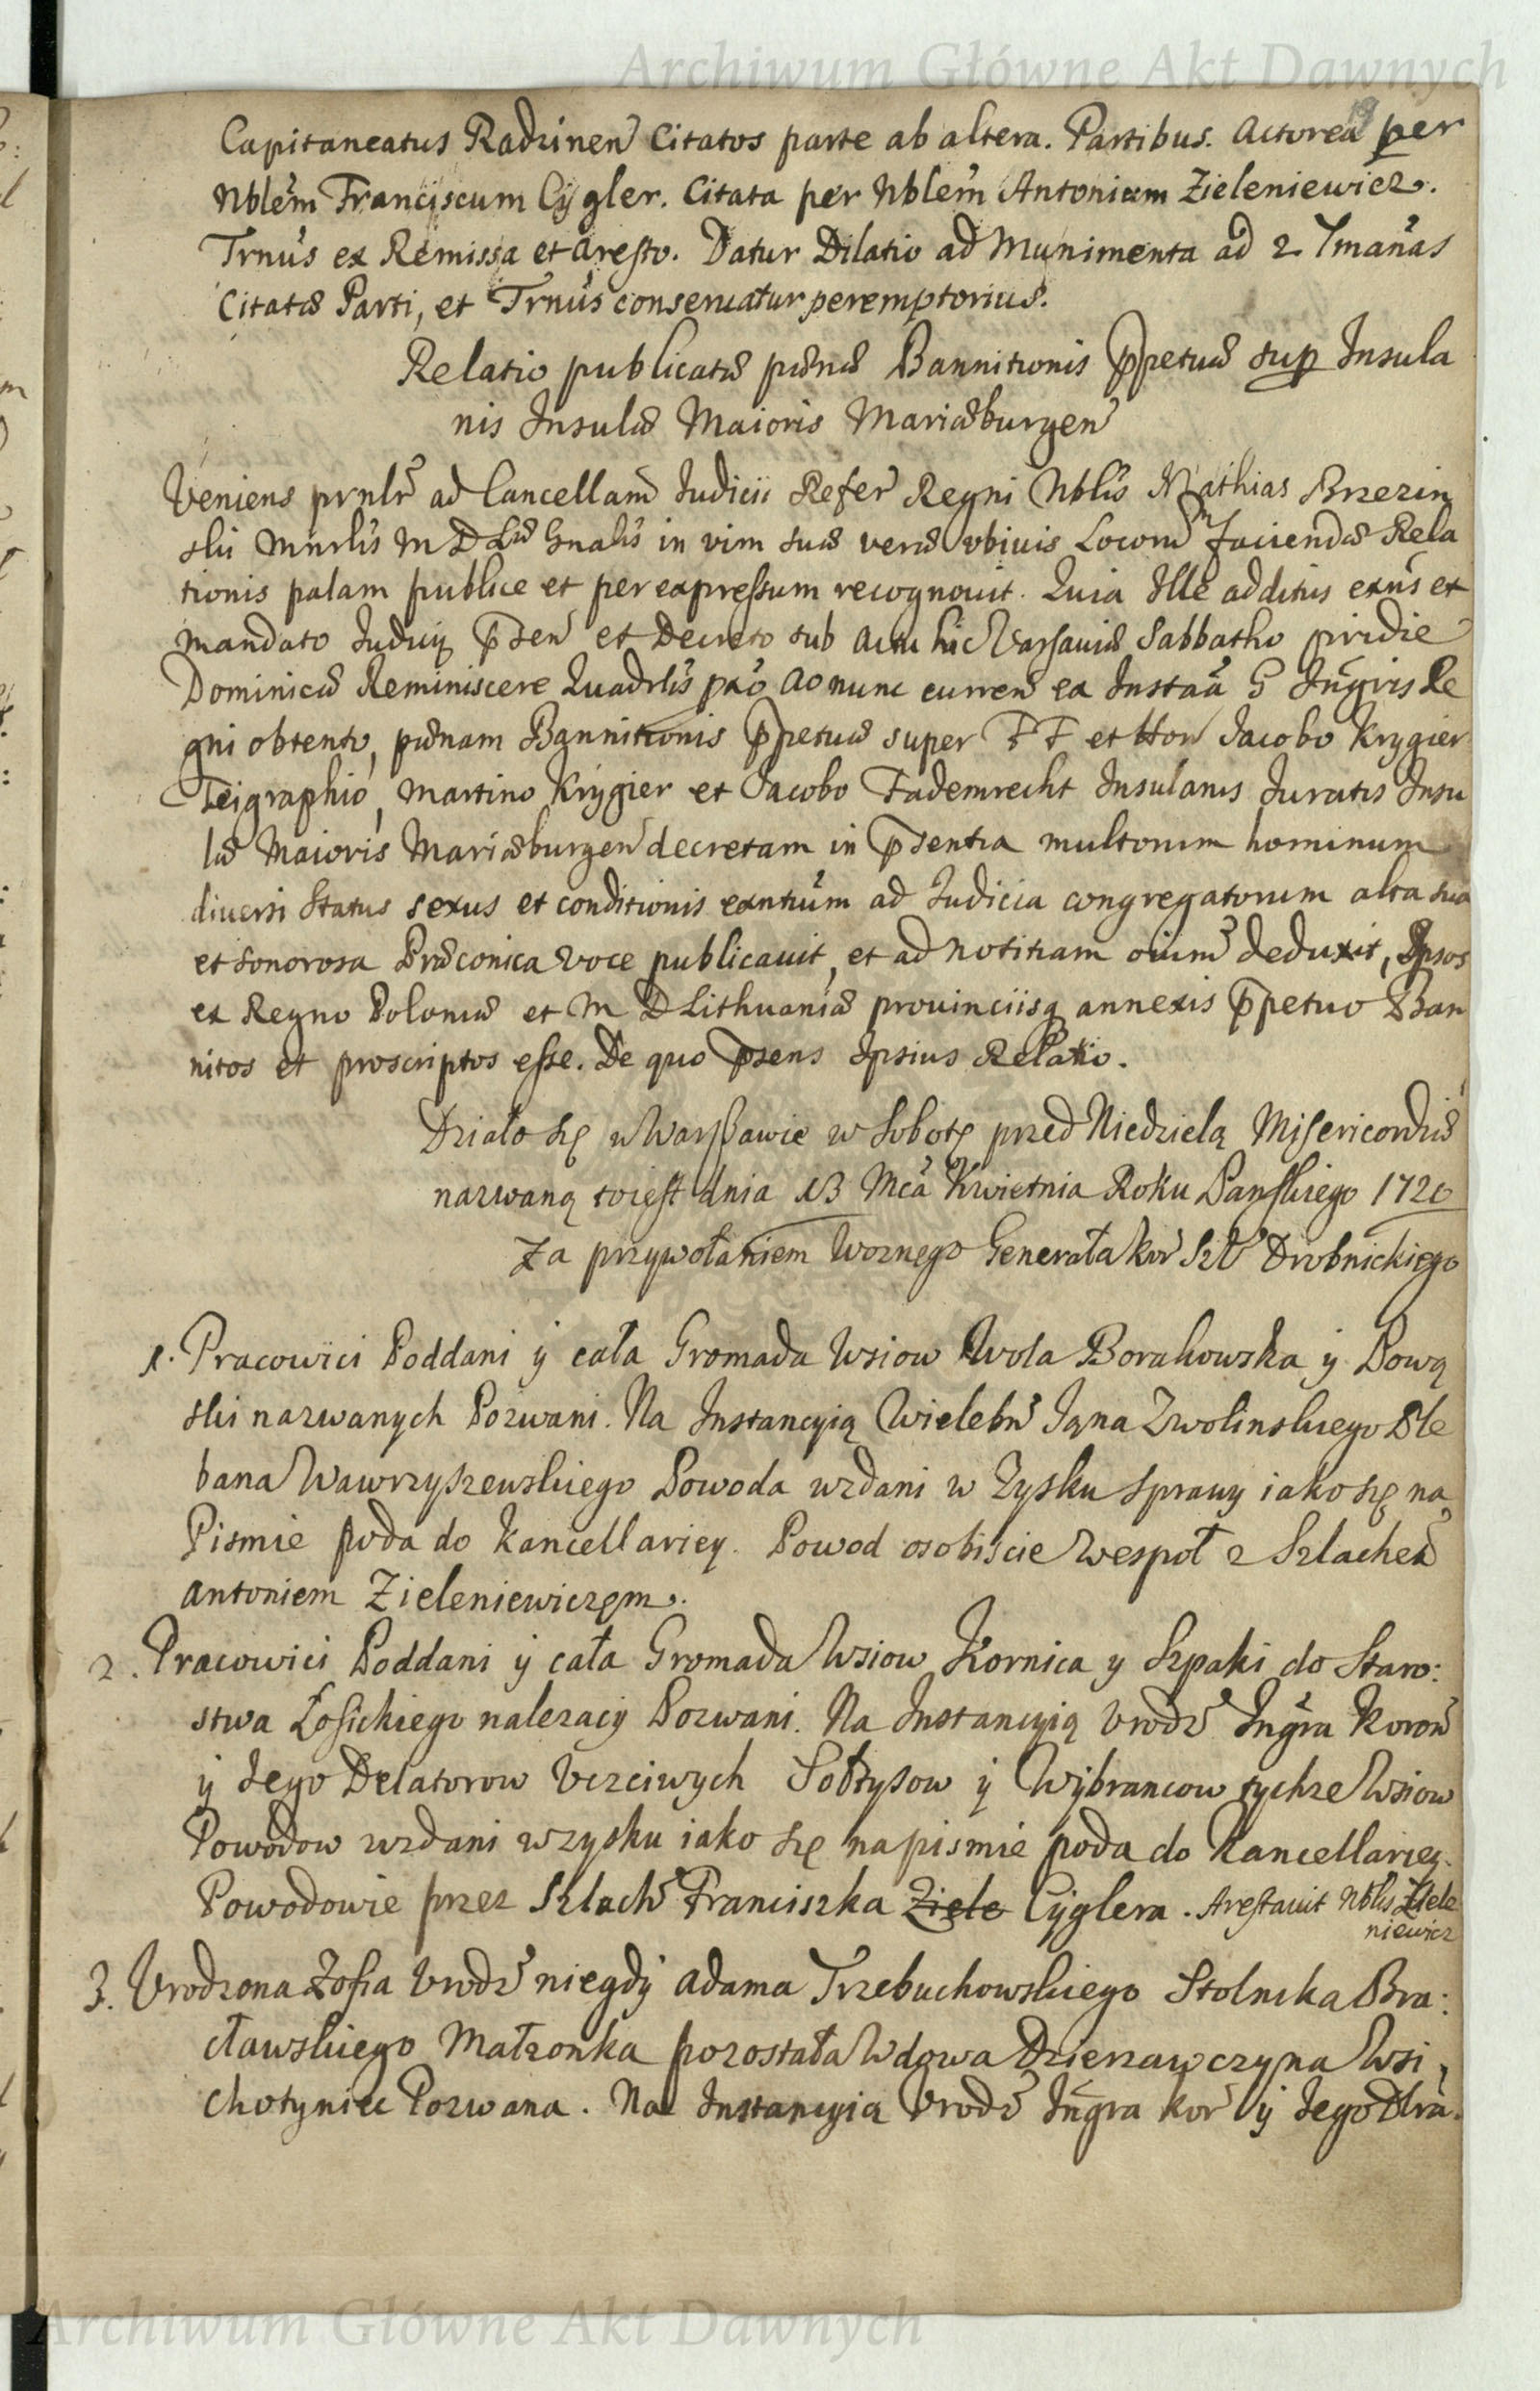 Archiwum Główne Akt Dawnych
Capitaneatus Radzinen Citatos parte ab altera. Partibus. Actorea per
Nblem Franciscum Cygler. Citata per Nblem Antonium Zieleniewicz.
Trnus ex Remissa et Aresto. Datur Dilatio ad Munimenta ad 2 7manas
Citatæ Parti, et Trnus conservatur peremptorius.
Relatio publicatæ pænæ Bannitionis ppetuæ sup Insula
nis Insulæ Maioris Mariæburgen
Veniens prnlr ad Cancellam Iudicii Refer Regni Nblis Mathias Brzezin
ski Mnrlis M D L Gnalis in vim suæ veræ vbivis Locorum faciendæ Rela
tionis palam publice et per expressum recognovit. Quia Ille additus exns et
mandato Iudicij psen et Decreto sub Actu hic Varsaviæ Sabbatho pridie
Dominicæ Reminiscere Quadrlis pxo Ao nunc curren ex Instaa G Ingris Re
gni obtento, pænam Bannitionis ppetuæ super FF et Hon Iacobo Krygier
Teigraphio, Martino Krygier et Iacobo Fademrecht Insulanis Iuratis Insu
læ Maioris Mariæburgen decretam in psentia multorum hominum
diversi Status sexus et conditionis exntium ad Iudicia congregatorum alta sua
et sonorosa Præconica voce publicavit, et ad notitiam oium deduxit, Ipsos
ex Regno Poloniæ et M D Lithuaniæ provinciisq annexis ppetuo Ban
nitos et proscriptos esse. De quo psens Ipsius Relatio.
Działo się w Warszawie w Sobotę przed Niedzielą Misericordiæ
nazwaną to iest dnia 13 Mca Kwietnia Roku Panskiego 1720
Za przywołaniem Woznego Generała Kor Szl Drobnickiego
1. Pracowici Poddani y cała Gromada Wsiow Wola Borakowska y Pową
ski nazwanych Pozwani. Na Instancyią Wielebn Iana Zwolinskiego Ple
bana Wawrzyszewskiego Powoda wzdani w Zysku sprawy iako się na
Pismie poda do Kancellariey. Powod osobiscie wespoł z Szlachen
Antoniem Zieleniewiczem.
2. Pracowici Poddani y cała Gromada Wsiow Kornica y Szpaki do Staro:
stwa Łosickiego nalezacy Pozwani. Na Instancyią Vrodz Ingra Koron
y Iego Delatorow Vczciwych Sołtysow y Wybrancow tychze Wsiow
Powodow wzdani w zysku iako się na pismie poda do Kancellariey.
Powodowie przez Szlach Franciszka Ziele Cyglera. Arestavit Nblis Ziele
niewicz
3. Vrodzona Zofia Vrodz niegdy Adama Trzebuchowskiego Stolnika Bra:
cławskiego Małzonka pozostała Wdowa Dzierzawczyna Wsi
Chotyniec Pozwana. Na Instancyią Vrodz Ingra Kor y Iego Dlra
Archiwum Główne Akt Dawnych